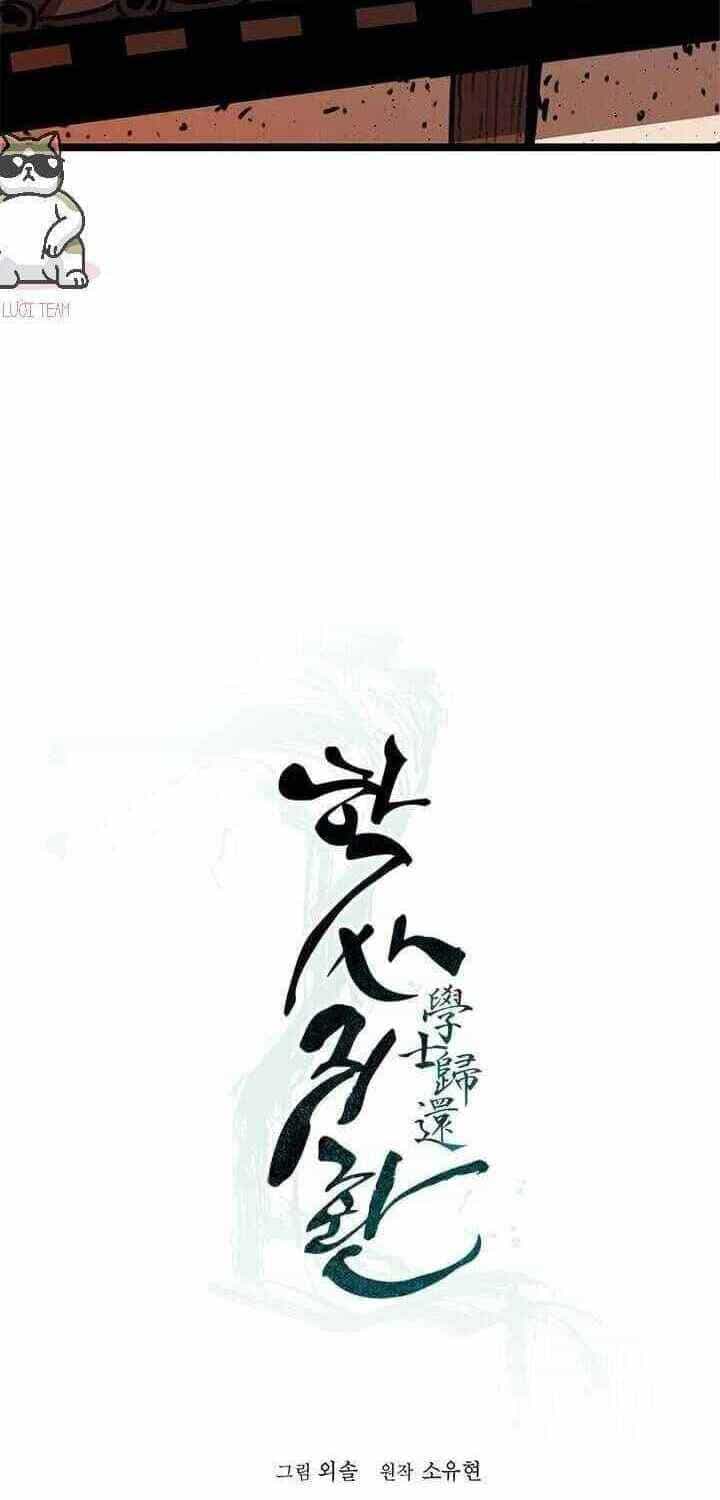 LƯỜI TEAM
학사귀환
學士歸還
그림 외솔 원작 소유현